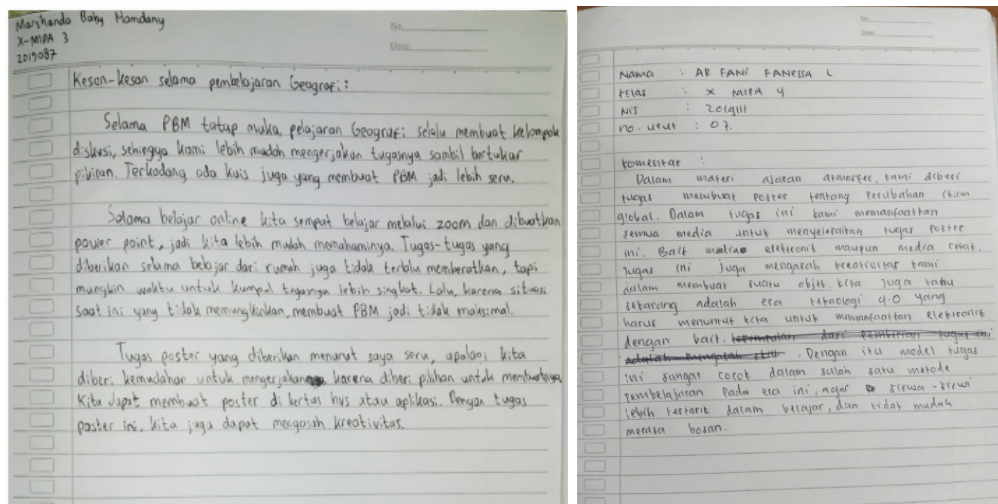 Marshanda Baby Hamdany
X-MIPA 3
2019087
No.
Date
Kesan-kesan selama pembelajaran Geografi:
Selama PBM tatap muka, pelajaran Geografi selalu membuat kelompok
diskusi, sehingga kami lebih mudah mengerjakan tugasnya sambil bertukar
pikiran. Terkadang ada kuis juga yang membuat PBM jadi lebih seru.
Selama belajar online kita sempat belajar melalui zoom dan dibuatkan
power point, jadi kita lebih mudah memahaminya. Tugas-tugas yang
diberikan selama belajar dari rumah juga tidak terlalu memberatkan, tapi
mungkin waktu untuk kumpul tugasnya lebih singkat. Lalu, karena situasi
saat ini yang tidak memungkinkan, membuat PBM jadi tidak maksimal.
Tugas poster yang diberikan menurut saya seru, apalagi kita
diberi kemudahan untuk mengerjakan karena diberi pilihan untuk membuatnya
Kita dapat membuat poster di kertas hvs atau aplikasi. Dengan tugas
poster ini, kita juga dapat mengasah kreativitas.
No.
Date
Nama : AR FANI FANESSA L
Kelas : X MIPA 4
NIS : 2019111
no. urut : 07.
Komentar :
Dalam materi ajaran atmosfer, kami diberi
tugas membuat poster tentang perubahan iklim
global. Dalam tugas ini kami memanfaatkan
semua media untuk menyelesaikan tugas poster
ini. Baik media elektronik maupun media cetak.
Tugas ini juga mengasah kreativitas kami
dalam membuat suatu objek. Kita juga tahu
sekarang adalah era teknologi 4.0 yang
harus menuntut kita untuk memanfaatkan elektronik
dengan baik. kesimpulan dari pemberian tugas ini
adalah mengasah . Dengan itu model tugas
ini sangat cocok dalam salah satu metode
pembelajaran pada era ini, agar siswa-siswi
lebih tertarik dalam belajar, dan tidak mudah
merasa bosan.